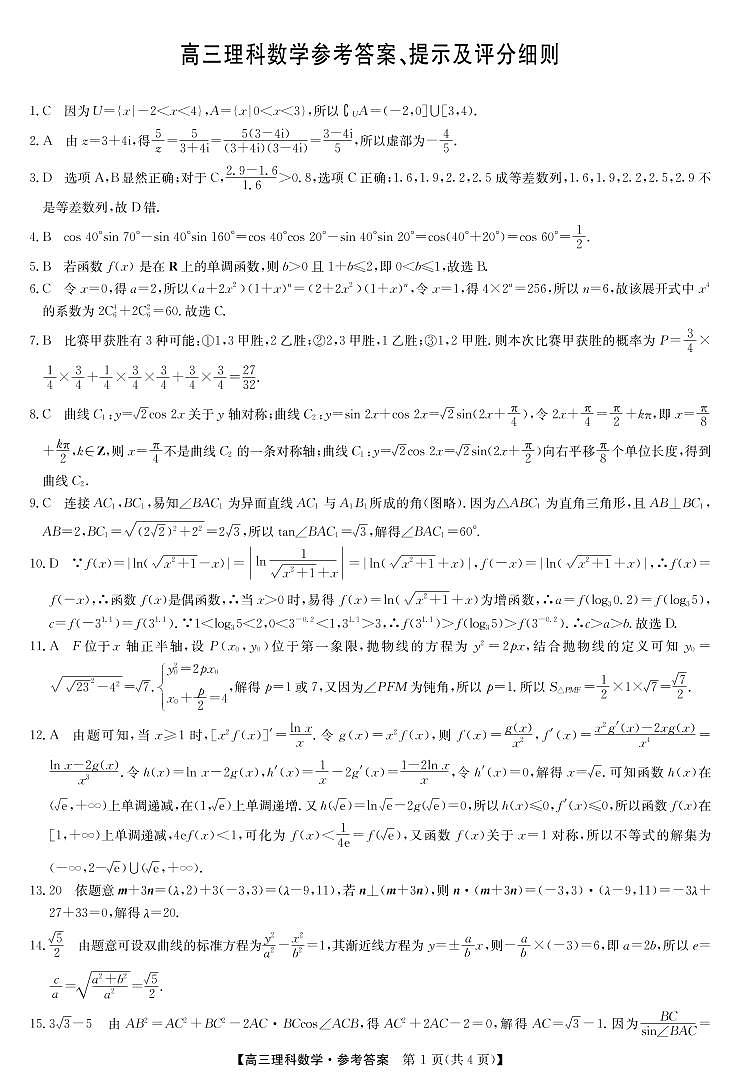 高三理科数学参考答案、提示及评分细则
1. C 因为U={x|-2<x<4},A={x|0<x<3},所以∁UA=(-2,0]∪[3,4).
2. A 由 z=3+4i,得5/z=5/(3+4i)=5(3-4i)/((3+4i)(3-4i))=(3-4i)/5,所以虚部为-4/5.
3. D 选项 A,B显然正确;对于 C,(2.9-1.6)/1.6>0.8,选项 C 正确;1.6,1.9,2.2,2.5 成等差数列,1.6,1.9,2.2,2.5,2.9 不
是等差数列,故 D 错.
4. B cos 40°sin 70°-sin 40°sin 160°=cos 40°cos 20°-sin 40°sin 20°=cos(40°+20°)=cos 60°=1/2.
5. B 若函数 f(x) 是在 R 上的单调函数,则 b>0 且 1+b≤2,即 0<b≤1,故选 B.
6. C 令 x=0,得 a=2,所以(a+2x²)(1+x)ⁿ=(2+2x²)(1+x)ⁿ,令 x=1,得 4×2ⁿ=256,所以 n=6,故该展开式中 x⁴
的系数为 2C₆⁴+2C₆²=60.故选 C.
7. B 比赛甲获胜有 3 种可能:①1,3 甲胜,2 乙胜;②2,3 甲胜,1 乙胜;③1,2 甲胜.则本次比赛甲获胜的概率为 P=3/4×
1/4×3/4+1/4×3/4×3/4+3/4×3/4=27/32.
8. C 曲线 C₁:y=√2cos 2x 关于 y 轴对称;曲线 C₂:y=sin 2x+cos 2x=√2sin(2x+π/4),令 2x+π/4=π/2+kπ,即 x=π/8
+kπ/2,k∈Z,则 x=π/4不是曲线 C₂ 的一条对称轴;曲线 C₁:y=√2cos 2x=√2sin(2x+π/2)向右平移π/8个单位长度,得到
曲线 C₂.
9. C 连接 AC₁,BC₁,易知∠BAC₁ 为异面直线 AC₁ 与 A₁B₁所成的角(图略).因为△ABC₁ 为直角三角形,且 AB⊥BC₁,
AB=2,BC₁=√((2√2)²+2²)=2√3,所以 tan∠BAC₁=√3,解得∠BAC₁=60°.
10. D ∵f(x)=|ln(√(x²+1)-x)|=|ln 1/(√(x²+1)+x)|=|ln(√(x²+1)+x)|,f(-x)=|ln(√(x²+1)+x)|,∴f(x)=
f(-x),∴函数 f(x)是偶函数,∴当 x>0 时,易得 f(x)=ln(√(x²+1)+x)为增函数,∴a=f(log₃0.2)=f(log₃5),
c=f(-3^1.1)=f(3^1.1).∵1<log₃5<2,0<3^-0.2<1,3^1.1>3,∴f(3^1.1)>f(log₃5)>f(3^-0.2).∴c>a>b.故选 D.
11. A F 位于 x 轴正半轴,设 P(x₀,y₀)位于第一象限,抛物线的方程为 y²=2px,结合抛物线的定义可知 y₀=
√(√23²-4²)=√7.{y₀²=2px₀ x₀+p/2=4,解得 p=1 或 7,又因为∠PFM 为钝角,所以 p=1.所以 S△PMF=1/2×1×√7=√7/2.
12. A 由题可知,当 x≥1 时,[x²f(x)]′=ln x/x.令 g(x)=x²f(x),则 f(x)=g(x)/x²,f′(x)=(x²g′(x)-2xg(x))/x⁴=
(ln x-2g(x))/x³.令 h(x)=ln x-2g(x),h′(x)=1/x-2g′(x)=(1-2ln x)/x,令 h′(x)=0,解得 x=√e.可知函数 h(x)在
(√e,+∞)上单调递减,在(1,√e)上单调递增.又 h(√e)=ln√e-2g(√e)=0,所以 h(x)≤0,f′(x)≤0,所以函数 f(x)在
[1,+∞)上单调递减,4ef(x)<1,可化为 f(x)<1/4e=f(√e),又函数 f(x)关于 x=1 对称,所以不等式的解集为
(-∞,2-√e)∪(√e,+∞).
13. 20 依题意 m+3n=(λ,2)+3(-3,3)=(λ-9,11),若 n⊥(m+3n),则 n·(m+3n)=(-3,3)·(λ-9,11)=-3λ+
27+33=0,解得 λ=20.
14. √5/2 由题意可设双曲线的标准方程为y²/a²-x²/b²=1,其渐近线方程为 y=±a/b x,则-a/b×(-3)=6,即 a=2b,所以 e=
c/a=√((a²+b²)/a²)=√5/2.
15. 3√3-5 由 AB²=AC²+BC²-2AC·BCcos∠ACB,得 AC²+2AC-2=0,解得 AC=√3-1.因为BC/sin∠BAC=
【高三理科数学·参考答案 第 1 页(共 4 页)】